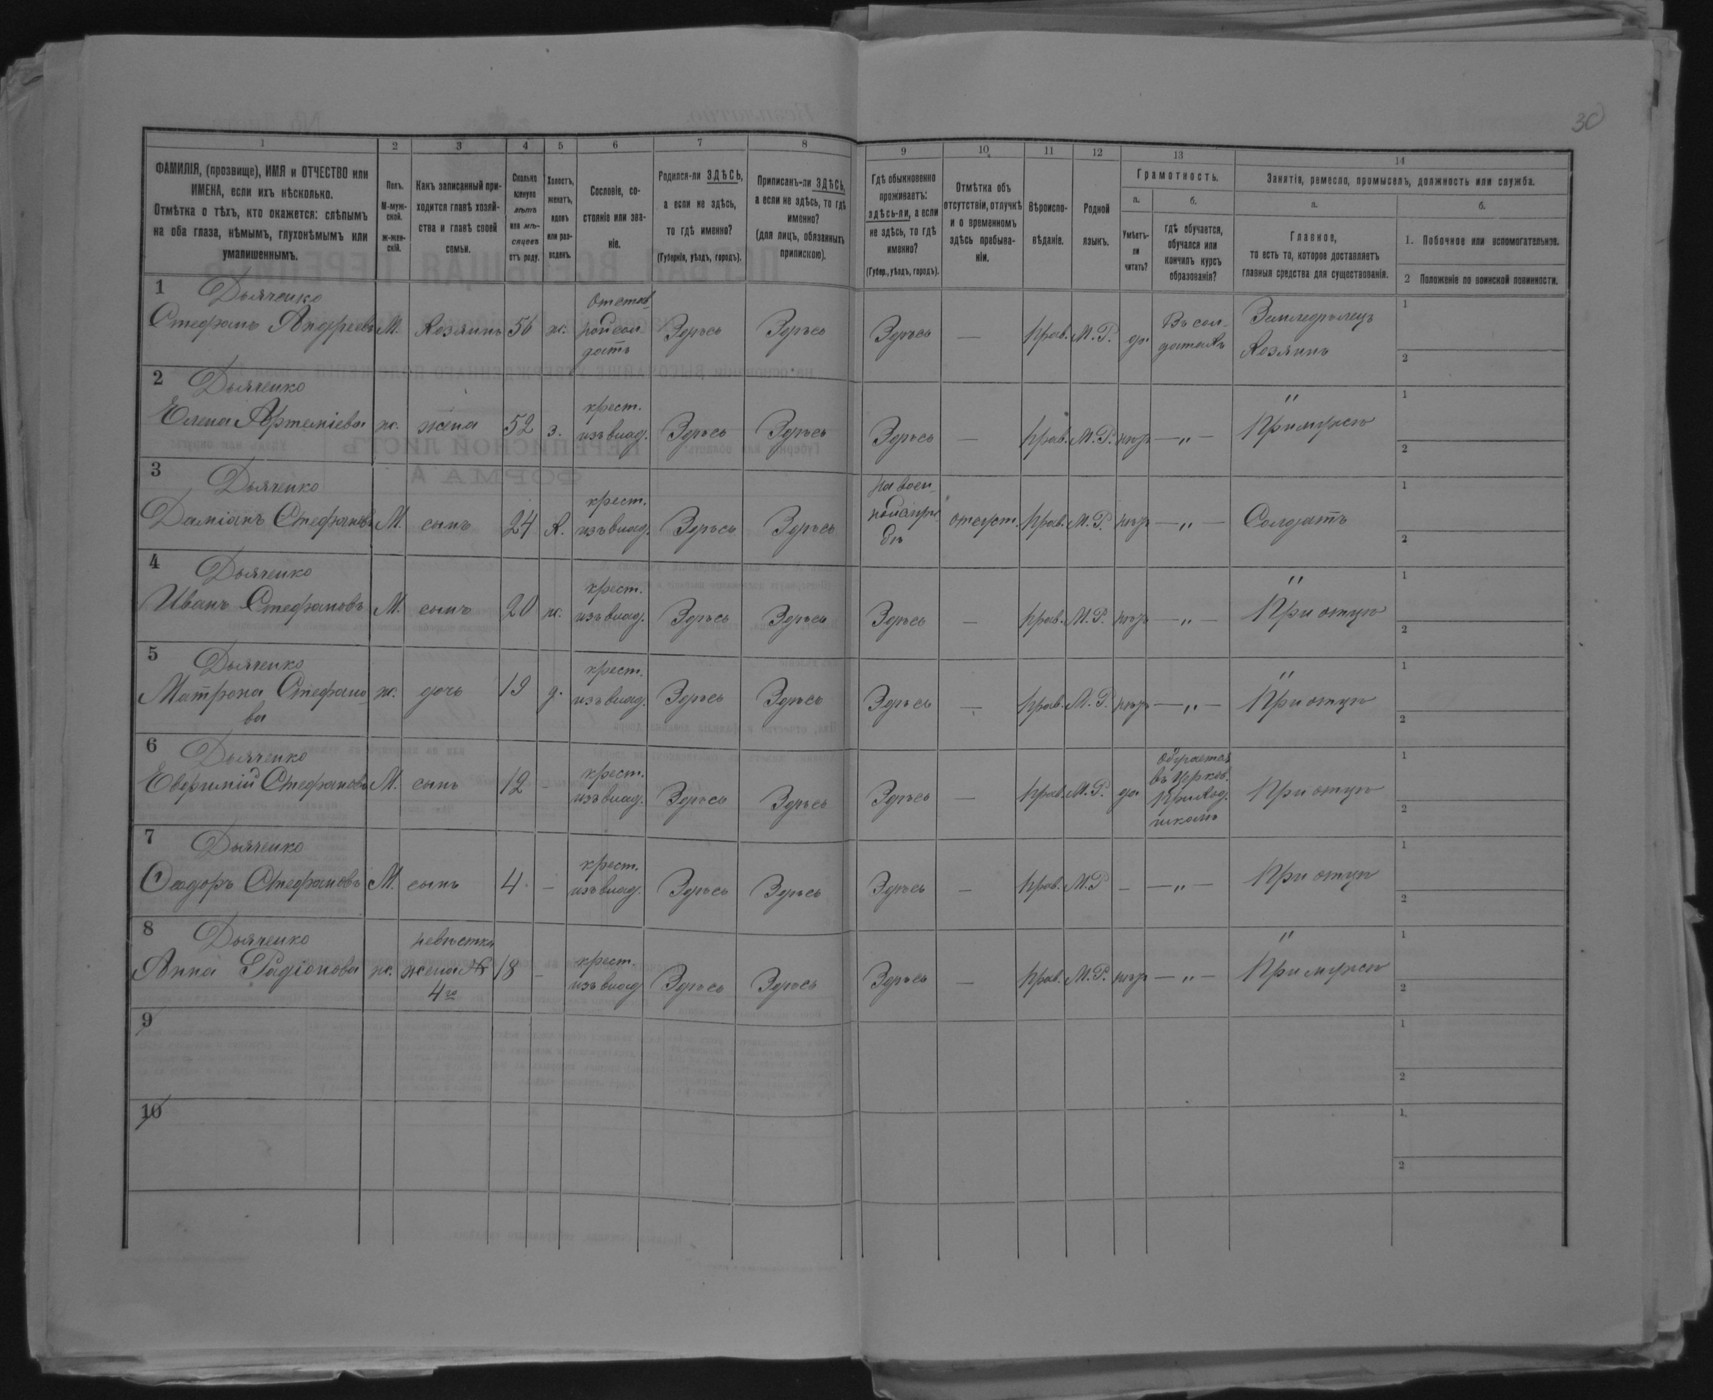 30
1 2 3 4 5 6 7 8 9 10 11 12 13 14
ФАМИЛІЯ, (прозвище), ИМЯ и ОТЧЕСТВО или
ИМЕНА, если ихъ нѣсколько.
Отмѣтка о тѣхъ, кто окажется: слѣпымъ
на оба глаза, нѣмымъ, глухонѣмымъ или
умалишеннымъ.
Полъ.
М-муж-
ской.
ж-жен-
скій.
Какъ записанный при-
ходится главѣ хозяй-
ства и главѣ своей
семьи.
Сколько
минуло
лѣтъ
или мѣ-
сяцевъ
отъ роду.
Холостъ,
женатъ,
вдовъ
или раз-
веденъ.
Сословіе, со-
стояніе или зва-
ніе.
Родился-ли ЗДѢСЬ,
а если не здѣсь,
то гдѣ именно?
(Губернія, уѣздъ, городъ).
Приписанъ-ли ЗДѢСЬ,
а если не здѣсь, то гдѣ
именно?
(для лицъ, обязанныхъ
припискою).
Гдѣ обыкновенно
проживаетъ:
здѣсь-ли, а если
не здѣсь, то гдѣ
именно?
(Губер., уѣздъ, городъ).
Отмѣтка объ
отсутствіи, отлучкѣ
и о временномъ
здѣсь пребыва-
ніи.
Вѣроиспо-
вѣданіе.
Родной
языкъ.
Грамотность.
а.
Умѣетъ-
ли
читать?
б.
гдѣ обучается,
обучался или
кончилъ курсъ
образованія?
Занятія, ремесло, промыселъ, должность или служба.
а.
Главное,
то есть то, которое доставляетъ
главныя средства для существованія.
б.
1. Побочное или вспомогательное.
2 Положеніе по воинской повинности.
1 Дьяченко
Стефанъ Андреевъ М. Хозяинъ 56 ж. отстав
ной сол
датъ Здѣсь Здѣсь Здѣсь — прав. М.Р. да Въ сол-
датахъ Земледѣлецъ
Хозяинъ 1
2
2 Дьяченко
Елена Артеміева ж. жена 52 з. крест.
изъ влад. Здѣсь Здѣсь Здѣсь — прав. М.Р. нѣтъ — „ — "
При мужѣ 1
2
3 Дьяченко
Даміанъ Стефановъ М. сынъ 24 х. крест.
изъ влад. Здѣсь Здѣсь отсутст. прав. М.Р. нѣтъ — „ — Солдатъ 1
2
4 Дьяченко
Иванъ Стефановъ М. сынъ 20 ж. крест.
изъ влад. Здѣсь Здѣсь Здѣсь — прав. М.Р. нѣтъ — „ — "
При отцѣ 1
2
5 Дьяченко
Матрона Стефано
ва ж. дочь 19 д. крест.
изъ влад. Здѣсь Здѣсь Здѣсь — прав. М.Р. нѣтъ — „ — "
При отцѣ 1
2
6 Дьяченко
Евфимій Стефановъ М. сынъ 12 - крест.
изъ влад. Здѣсь Здѣсь Здѣсь — прав. М.Р. да обучается
въ церков.
приход.
школѣ При отцѣ 1
2
7 Дьяченко
Ѳеодоръ Стефановъ М. сынъ 4 - крест.
изъ влад. Здѣсь Здѣсь Здѣсь — прав. М.Р — — „ — При отцѣ 1
2
8 Дьяченко
Анна Радіонова ж. невѣстка
жена №
4го 18 - крест.
изъ влад Здѣсь Здѣсь Здѣсь — прав. М.Р. нѣтъ — „ — "
При мужѣ 1
2
9 1
2
10 1
2